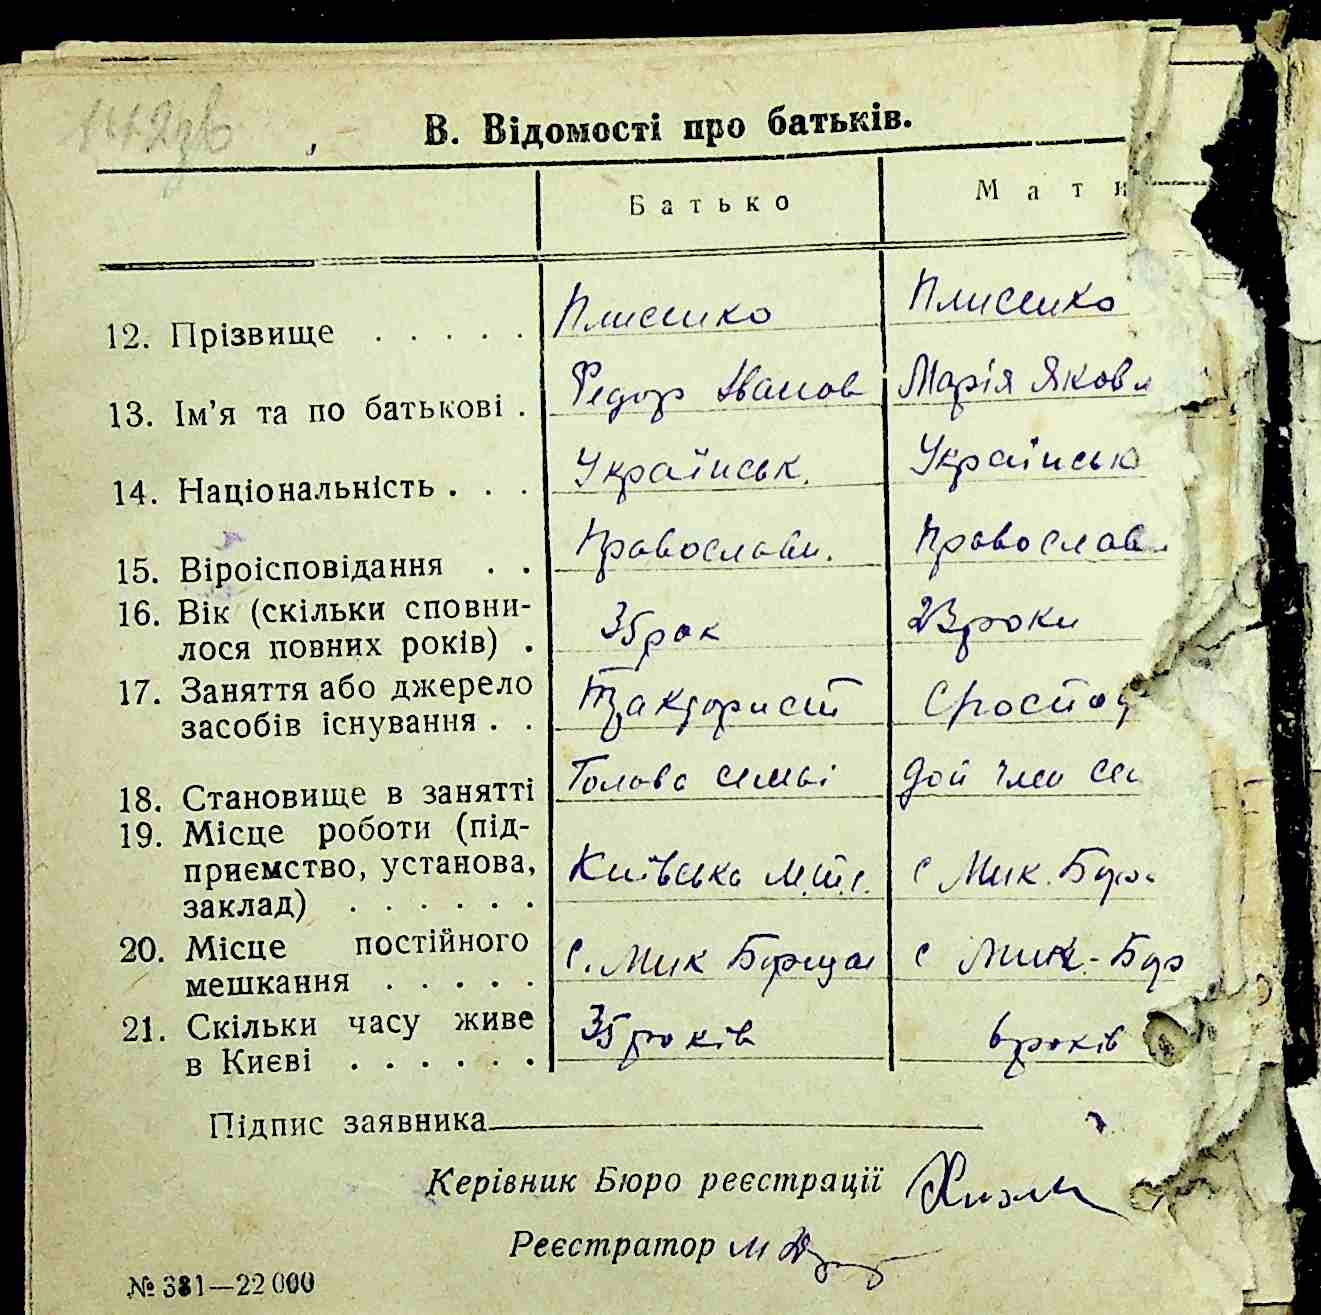 142зв
В. Відомості про батьків.
Батько Мати
12. Прізвище . . . . . Плисенко Плисенко
13. Ім'я та по батькові . Федор Іванов Марія Яковл
14. Національність . . . Українськ. Українськ
15. Віроісповідання . . Православн. Православн
16. Вік (скільки сповни-
лося повних років) . 35 рок 23 роки
17. Заняття або джерело
засобів існування . . Тракторист
18. Становище в занятті Голова семьі
19. Місце роботи (під-
приємство, установа,
заклад) . . . . . . Київська М.Т.С. с Мик. Борщ
20. Місце постійного
мешкання . . . . . с. Мик Борщаг с Мик.-Бор
21. Скільки часу живе
в Києві . . . . . . 35 років 6 років
Підпис заявника
Керівник Бюро реєстрації
Реєстратор
№ 381—22 000